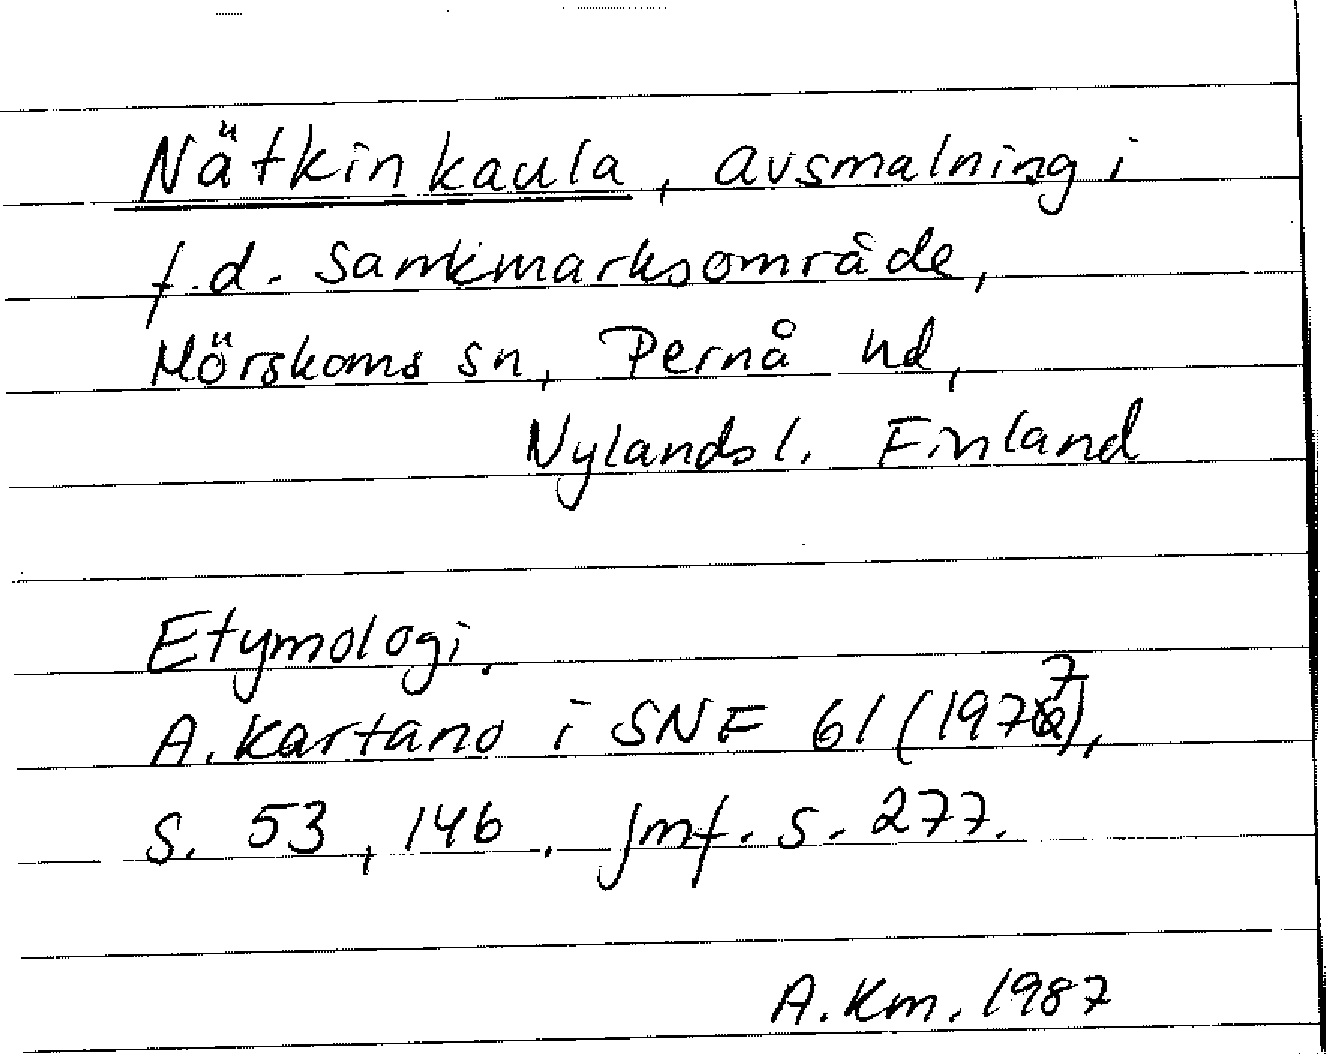 Nätkinkaula, avsmalning i
f.d. samkmarksområde,
Mörskoms sn, Pernå hd,
Nylands l. Finland
Etymologi.
A. Kartano i SNF 61 (1977),
s. 53, 146. jmf. s. 277.
A. Km. 1987